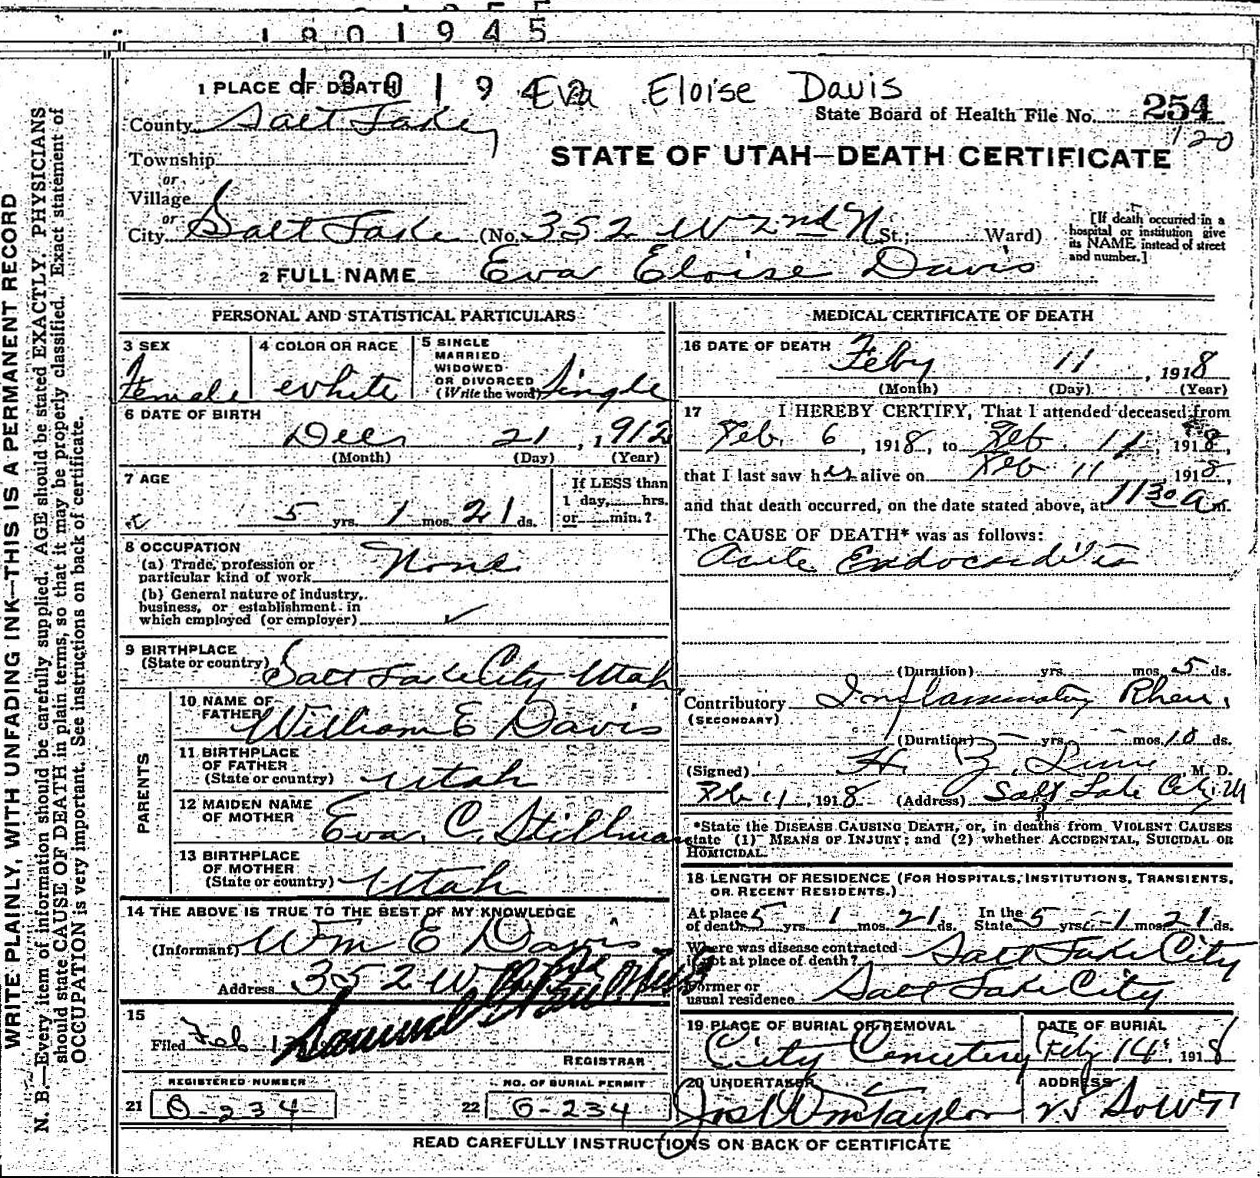 1801945
1301942 Eva Eloise Davis
1 PLACE OF DEATH
State Board of Health File No. 254
120
County Salt Lake
STATE OF UTAH—DEATH CERTIFICATE
Township
or
Village
or
City Salt Lake (No. 352 W 2nd N St.; Ward)
[If death occurred in a hospital or institution give its NAME instead of street and number.]
2 FULL NAME Eva Eloise Davis
PERSONAL AND STATISTICAL PARTICULARS
3 SEX Female
4 COLOR OR RACE White
5 SINGLE MARRIED WIDOWED OR DIVORCED (Write the word) Single
6 DATE OF BIRTH
Dec 21, 1912
(Month) (Day) (Year)
7 AGE
5 yrs. 1 mos. 21 ds.
If LESS than 1 day, hrs. or min.?
8 OCCUPATION
(a) Trade, profession or particular kind of work None
(b) General nature of industry, business, or establishment in which employed (or employer) ✓
9 BIRTHPLACE
(State or country) Salt Lake City Utah
PARENTS
10 NAME OF FATHER William E Davis
11 BIRTHPLACE OF FATHER (State or country) Utah
12 MAIDEN NAME OF MOTHER Eva C. Stillman
13 BIRTHPLACE OF MOTHER (State or country) Utah
14 THE ABOVE IS TRUE TO THE BEST OF MY KNOWLEDGE
(Informant) Wm E Davis
Address 352 W
15
Filed Feb 1
REGISTRAR
REGISTERED NUMBER
21 B-234
NO. OF BURIAL PERMIT
22 G-234
MEDICAL CERTIFICATE OF DEATH
16 DATE OF DEATH Feby 11, 1918
(Month) (Day) (Year)
17 I HEREBY CERTIFY, That I attended deceased from
Feb. 6, 1918, to Feb. 11, 1918,
that I last saw her alive on Feb 11 1918,
and that death occurred, on the date stated above, at 1130 a m.
The CAUSE OF DEATH* was as follows:
Acute Endocarditis
(Duration) yrs. mos. 5 ds.
Contributory Inflammatory Rheu.
(SECONDARY)
(Duration) yrs. mos. 10 ds.
(Signed) H. Z. M. D.
Feb 11, 1918 (Address) Salt Lake City, U
*State the DISEASE CAUSING DEATH, or, in deaths from VIOLENT CAUSES state (1) MEANS OF INJURY; and (2) whether ACCIDENTAL, SUICIDAL OR HOMICIDAL.
18 LENGTH OF RESIDENCE (FOR HOSPITALS, INSTITUTIONS, TRANSIENTS, OR RECENT RESIDENTS.)
At place of death 5 yrs. 1 mos. 21 ds. In the State 5 yrs. 1 mos. 21 ds.
Where was disease contracted if not at place of death? Salt Lake City
Former or usual residence Salt Lake City
19 PLACE OF BURIAL OR REMOVAL
City Cemetery
DATE OF BURIAL
Feby 14 1918
20 UNDERTAKER
Jos Wm Taylor
ADDRESS
25 So W T
READ CAREFULLY INSTRUCTIONS ON BACK OF CERTIFICATE
WRITE PLAINLY, WITH UNFADING INK—THIS IS A PERMANENT RECORD
N. B.—Every item of information should be carefully supplied. AGE should be stated EXACTLY. PHYSICIANS
should state CAUSE OF DEATH in plain terms, so that it may be properly classified. Exact statement of
OCCUPATION is very important. See instructions on back of certificate.